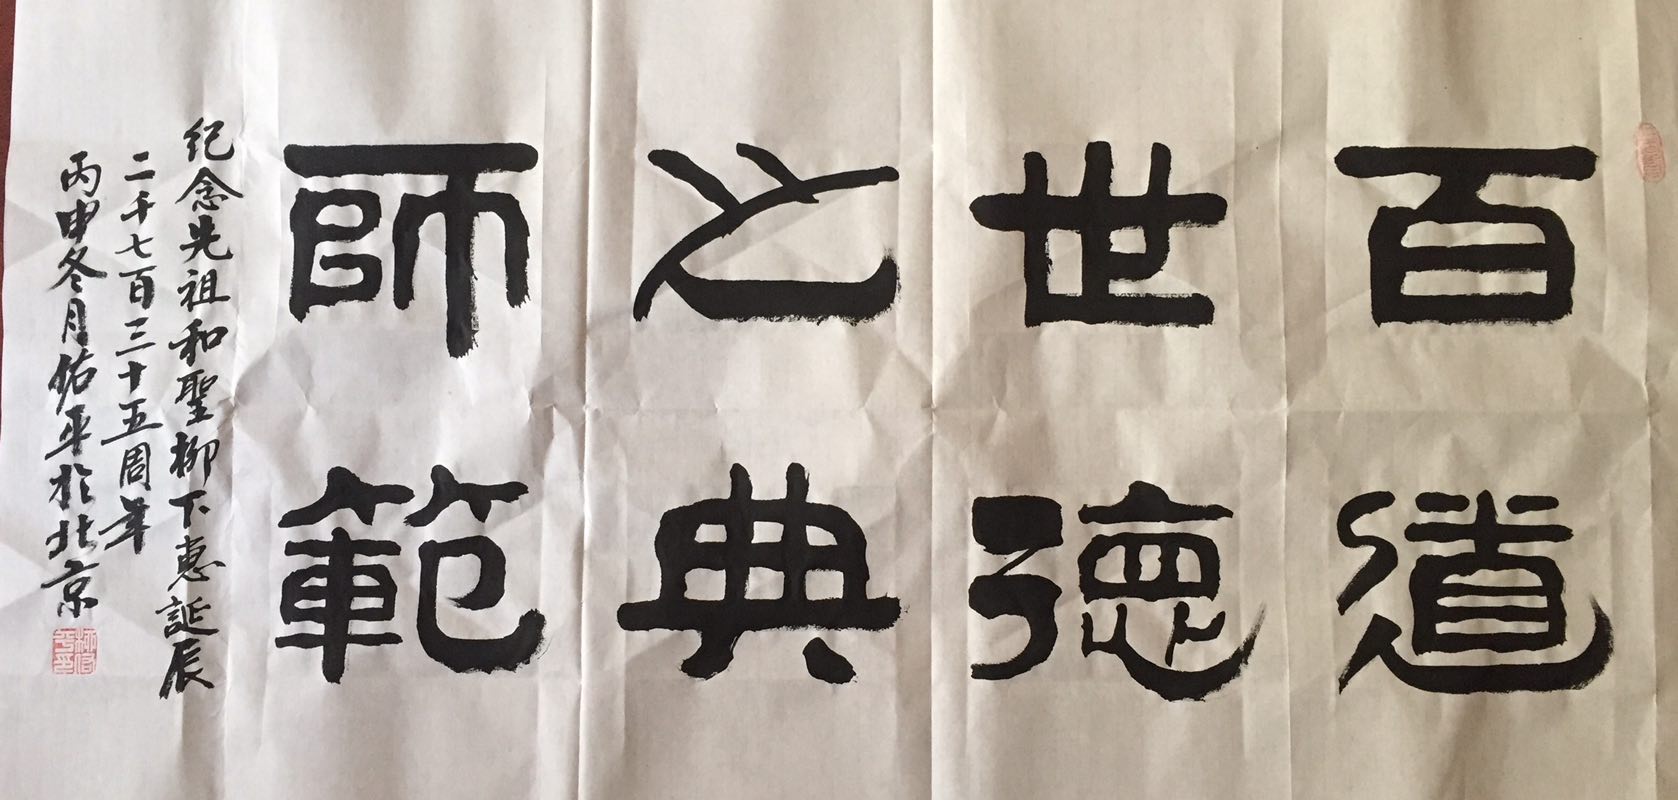 百世之師
道德典範
纪念先祖和聖柳下惠誕辰
二千七百三十五周年
丙申冬月佑平於北京